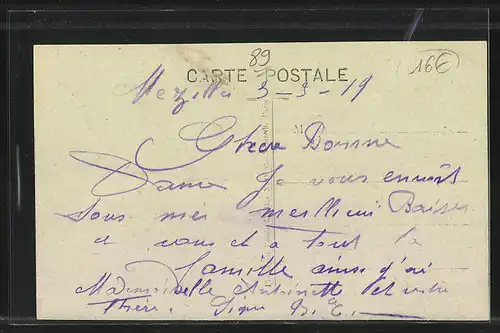 89
16€
CARTE POSTALE
Mezilles 3-3-19
M
Chère Bonne
Dame Je vous envoit
tous mes meilleui Baisers
et vous et a tout la
famille ainsi q'ai
Mademoiselle Antoinette et votre
Signe B. C.